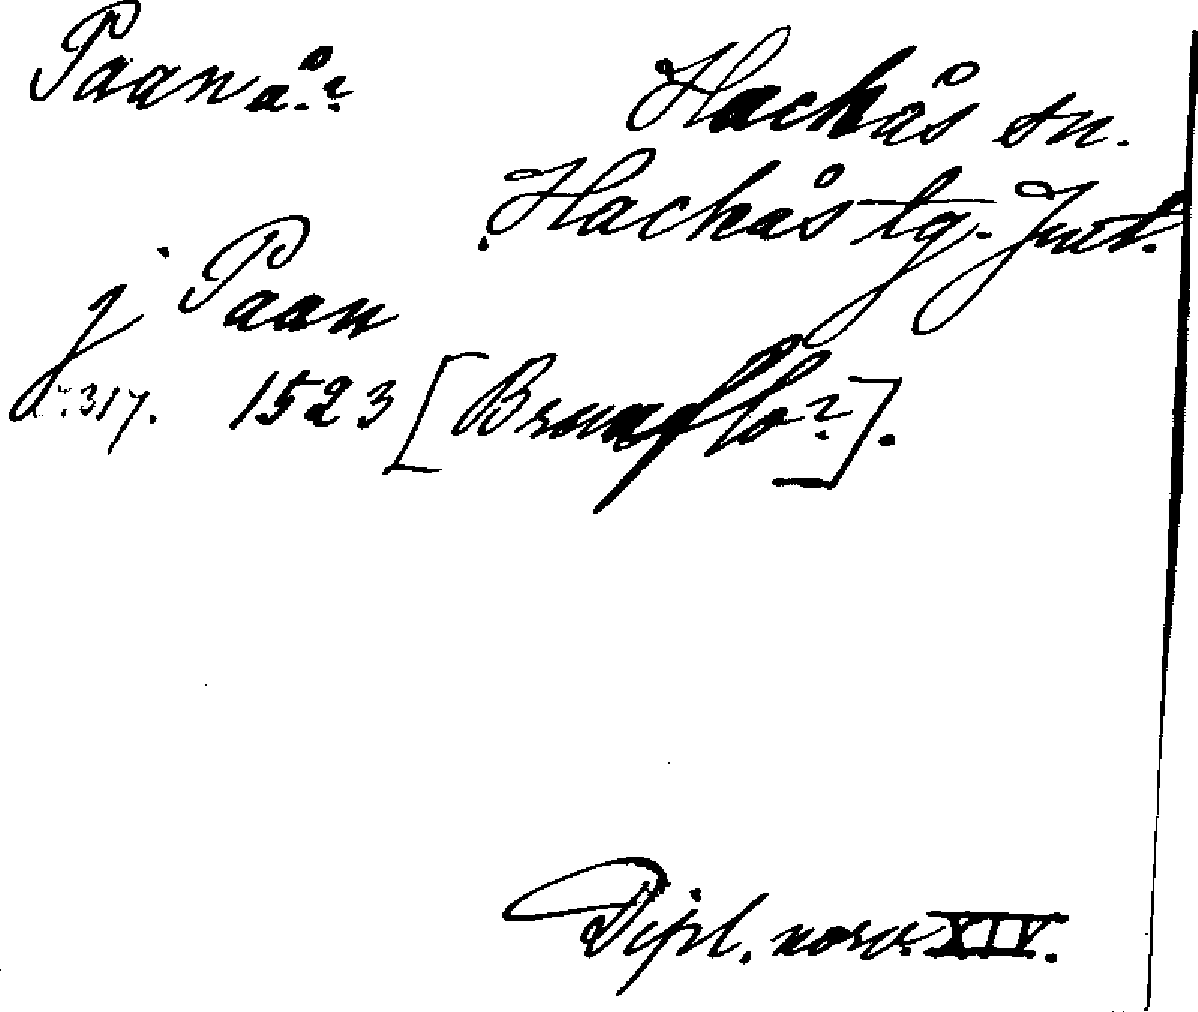 Paan å.?
Hackås sn.
Hackås tg. Jmtl.
j Paan
s. 317. 1523 [Brunflo?].
Dipl. norv. XIV.